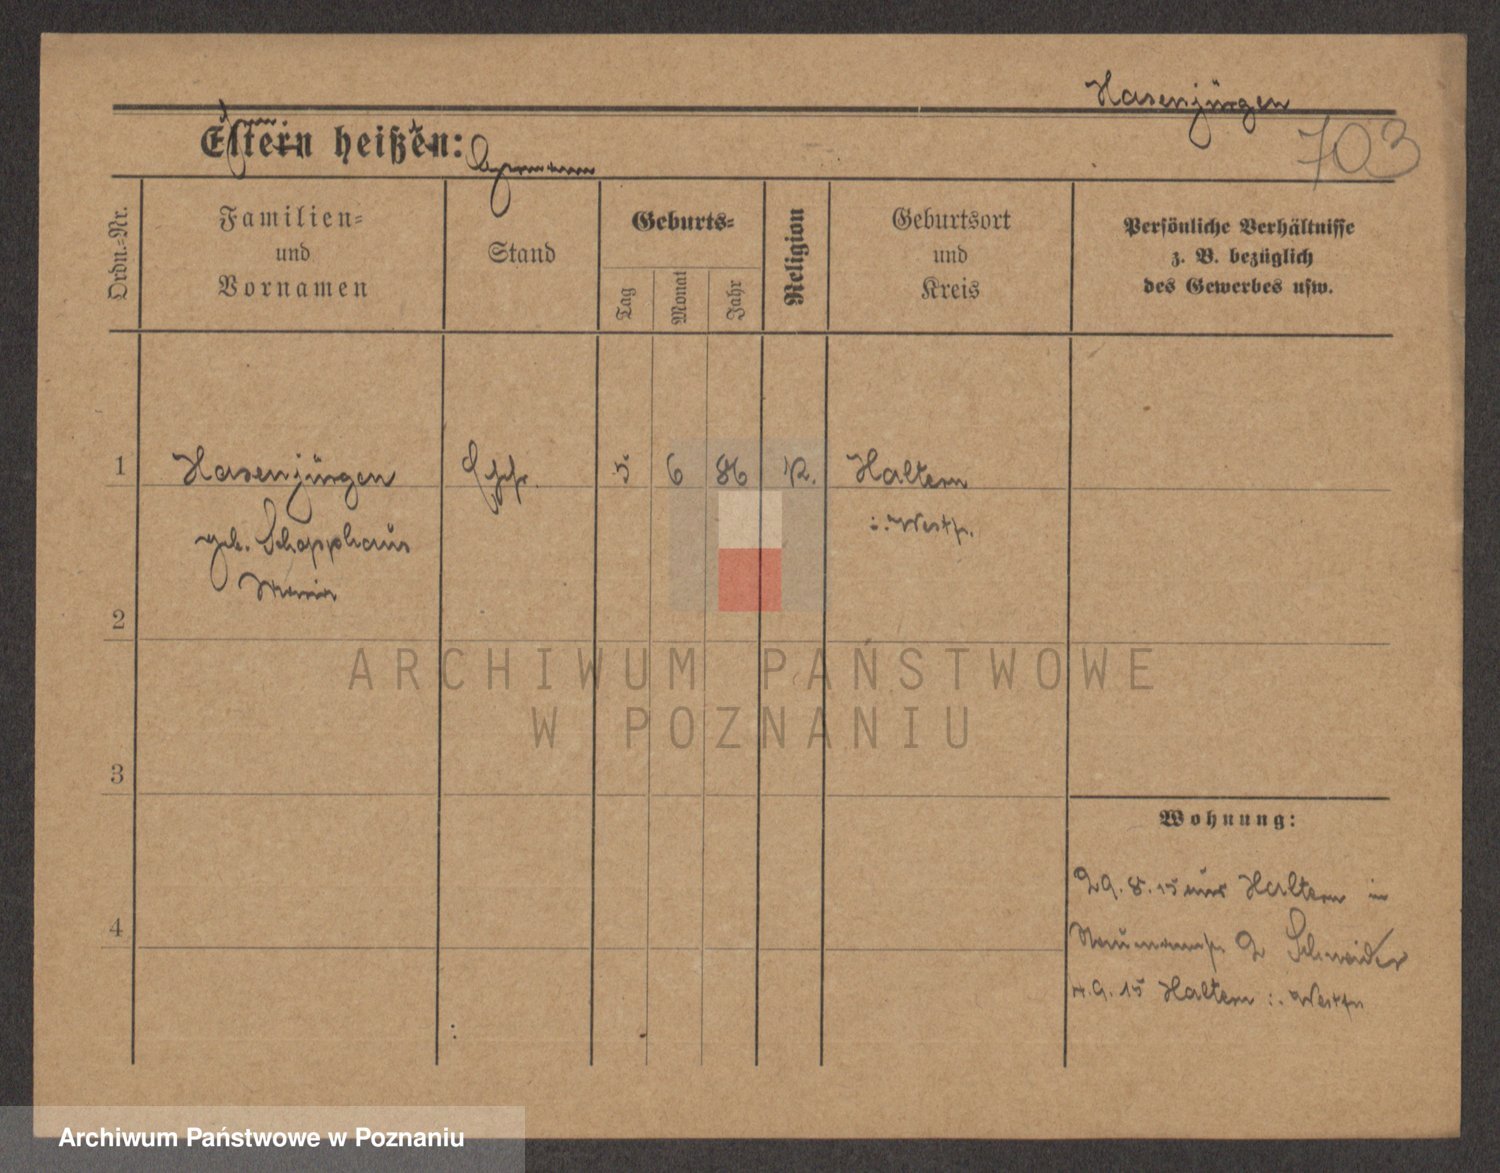 Hasenjürgen
703
Eltern heißen:
Ordn.=Nr.
Familien=
und
Vornamen
Stand
Geburts=
Tag
Monat
Jahr
Religion
Geburtsort
und
Kreis
Persönliche Verhältnisse
z. B. bezüglich
des Gewerbes usw.
1
Hasenjürgen
5.
6
86
K.
Haltern
geb. Schopphaus
i. Westf.
Maria
2
ARCHIWUM PAŃSTWOWE
W POZNANIU
3
Wohnung:
29. 8. 15 aus Haltern in
4
Naumannstr 2 Schneider
4. 9. 15 Haltern i. Westfn
Archiwum Państwowe w Poznaniu